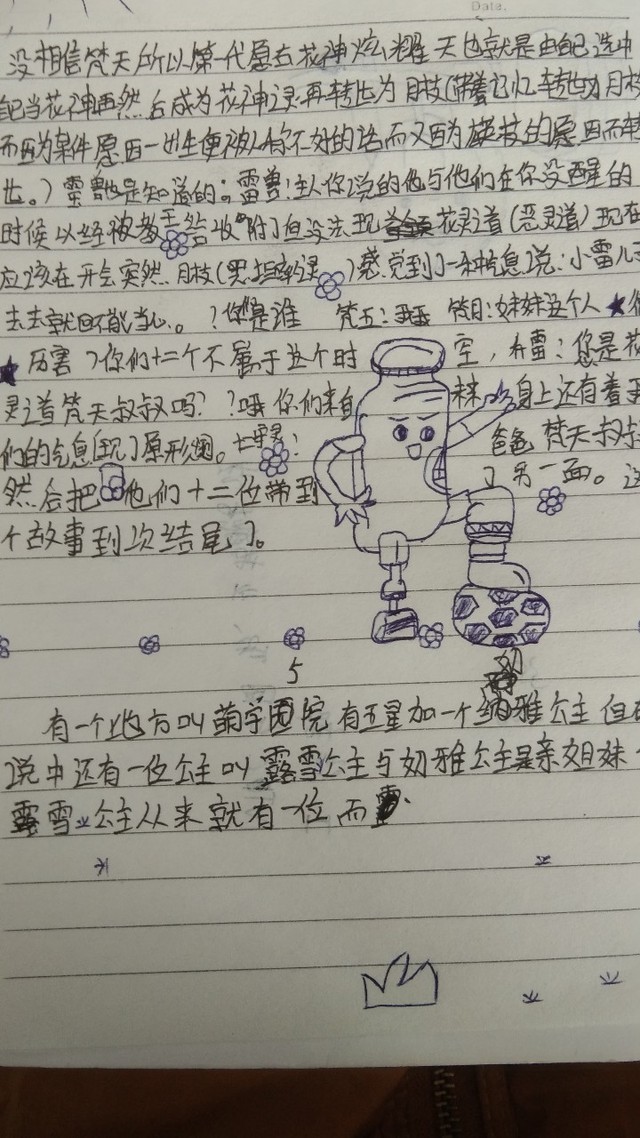 Date.
没相信梵天所以第一代愿去花神炫耀天也就是由自己选中
自己当花神再然后成为花神灵再转世为月枝(带着记忆转世)月枝
而因为某件愿因一出生便被人骂不好的话而又因为的愿因而转
世。)雷兽也是知道的。雷兽:主人你说的他与他们在你没醒的
时候以经被教王给收附了但没法现花灵道(恶灵道)现在
应该在开会突然月枝(黑)感觉到了一种气息说:小雷儿
去去就回能当心。?你是谁 梵五:我 妹妹这个人
厉害?你们十二个不属于这个时空,布雷:您是花
灵道梵天叔叔吗??哦你们来自未来身上还有着
们的气息(现了原形)。 爸爸 梵天叔叔
然后把他们十二位带到了另一面。这
个故事到次结尾了。
5
有一个地方叫萌学园院有五星加一个纳雅公主但在
说中还有一位公主叫露雪公主与奶雅公主是亲姐妹
露雪公主从来就有一位而